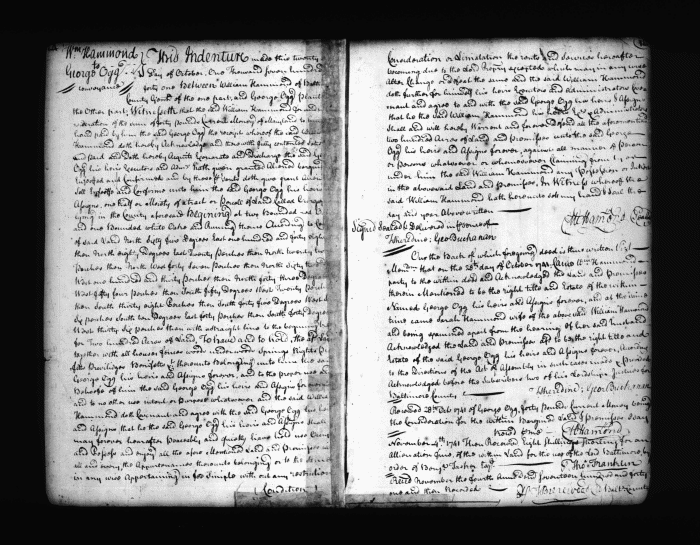 Wm Hammond
to
George Ogg
conveyance
This Indenture made this twenty
day of October. One Thousand seven hundred
forty one Between William Hammond of
County Gent of the one part, and George Ogg
the Other part, Witnesseth that the said William Hammond
of the sum of forty pounds Current Money of Maryland to
hand paid by him the said George Ogg the receipt whereof the said William
Hammond doth hereby Acknowledge and
and Paid and doth hereby Acquitt Exonerate and Discharge the said George
Ogg his heirs Executors and hath given granted Aliened bargained
Enfeofed and Confirmed and by these presents doth give grant
Sell Enfeoffe and Confirme unto him the said George Ogg his heirs
Assigns, one half or Moiety of a tract or parcele of Land Called
Lying in the County aforesaid Begining at two Bounded red
and one Bounded white Oaks and Running thence According to
of said Land North Sixty five Degrees East one hundred and forty eight
then North eight Degrees East Twenty perches then North twenty
perches then North West forty Seven perches then North Sixty
West one hundred and thirty perches then North forty three Degrees
West fifty four perches then South fifty Degrees West Twenty
then South thirty eight perches then South forty five Degrees West
Six perches South ten Degrees East forty perches then South forty Degrees
West thirty Six perches then with a straight line to the begining
for Two hundred Acres of Land, To have and to hold, the
together with all houses fences woods underwoods Springs Rights
Priviledges Benefitts & Heraments Belonging unto him the said
George Ogg his heirs and Assigns forever, and to the proper use and
Behoofe of him the said George Ogg his heirs and Assigns for ever
and to no other use intent or purpose whatsoever and the said William
Hammond doth Covenant and agree with the said George Ogg his heirs
and Assigns that he the said George Ogg his heirs and Assigns shall
may forever hereafter Peaceably and quietly have hold use Occupy
and Possess and enjoy all the afore Mentioned Land and Premises
all and every the Appurtenances thereunto belonging or to the same
in any wise Appertaining in fee Simple with out any restriction
Condition
Consideration or Limitation the rents and Services hereafter
becoming due to the Lord Propry excepted which may in any wise
Alter Change or defeat the same and the said William Hammond
doth further for himself his heirs Executors and administrators
and agree to and with the said George Ogg his heirs & Assigns
that he the said William Hammond his heirs
Shall and will hereby Warrant and forever defend all the aforementioned
two hundred Acres of Land and premises unto the said George
Ogg his heirs and Assigns forever, against all manner of Person
or Persons whatsoever or whomsoever Claiming from by or
under him the said William Hammond any Possession or
in the abovesaid Land and premises. In Witness whereof the
said William Hammond hath hereunto sett my hand & seal the
day and year Above written
Signed Sealed & Delivered in presence of
Wm Hammond Seale
T Sheredine; George Buchanan
On the Back of which foregoing deed is thus written Viz
Memdm that on the 28th day of October 1741 Came Wm Hammond
party to the within deed and Acknowledged the Land and Premises
therein Mentioned to be the right title and Estate of the within
Named George Ogg his heirs and Assigns forever, and at the same
time came Sarah Hammond wife of the above said William Hammond
and being examined apart from the hearing of her said husband
Acknowledged the Land and premises to be the right title and
Estate of the said George Ogg his heirs and Assigns forever, According
to the Directions of the Act of Assembly in such cases made & Provided
Acknowledged before the Subscribers two of his Lordships Justices for
Baltimore County
T Sheredine; Geo: Buchanan
Received 28th Octor 1741 of George Ogg, forty Pounds Current Money being
the Consideration for the within Bargained Land & Premises Say
Recd pr me Wm Hammond
November 4th 1741 Then Received Eight Shillings Sterling for an
Alienation fine of the within Land for the use of the Lord Baltimore, by
order of Benja Tasker Esqr
Tho: Franklin
Filed November the fourth Anno Dom Seventeen hundred and forty
one and then Recorded
Balt County